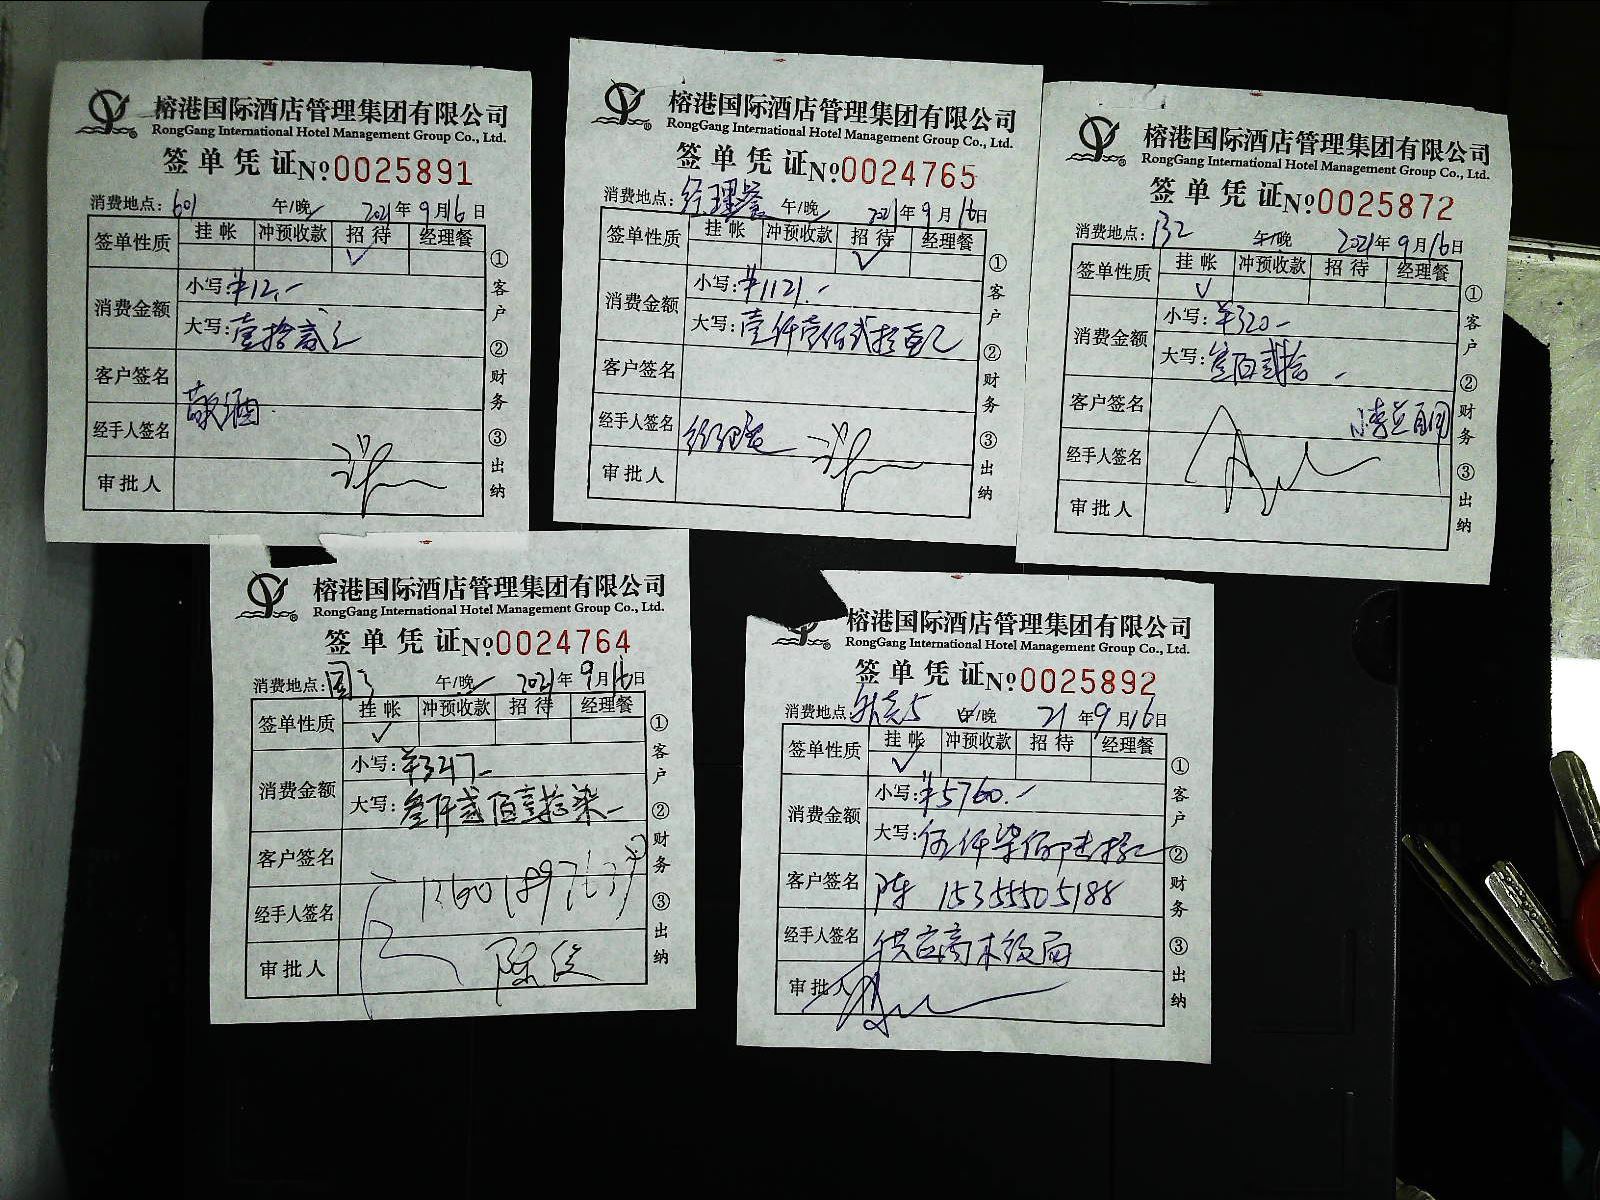 榕港国际酒店管理集团有限公司
RongGang International Hotel Management Group Co., Ltd.
签单凭证 №0025891
消费地点：601 午/晚 2021年9月16日
签单性质 挂帐 冲预收款 招待 经理餐
✓
消费金额 小写：¥12.-
大写：壹拾贰元
客户签名
经手人签名 敬酒
审批人
①客户 ②财务 ③出纳
榕港国际酒店管理集团有限公司
RongGang International Hotel Management Group Co., Ltd.
签单凭证 №0024765
消费地点：经理餐 午/晚 2021年9月16日
签单性质 挂帐 冲预收款 招待 经理餐
✓
消费金额 小写：¥1121.-
大写：壹仟壹佰贰拾壹元
客户签名
经手人签名 经理餐
审批人
①客户 ②财务 ③出纳
榕港国际酒店管理集团有限公司
RongGang International Hotel Management Group Co., Ltd.
签单凭证 №0025872
消费地点：132 午/晚 2021年9月16日
签单性质 挂帐 冲预收款 招待 经理餐
✓
消费金额 小写：¥320-
大写：叁佰贰拾-
客户签名
经手人签名
审批人
①客户 ②财务 ③出纳
榕港国际酒店管理集团有限公司
RongGang International Hotel Management Group Co., Ltd.
签单凭证 №0024764
消费地点： 午/晚 2021年9月16日
签单性质 挂帐 冲预收款 招待 经理餐
✓
消费金额 小写：¥3217-
大写：叁仟贰佰壹拾柒-
客户签名
经手人签名
审批人 陈俊
①客户 ②财务 ③出纳
榕港国际酒店管理集团有限公司
RongGang International Hotel Management Group Co., Ltd.
签单凭证 №0025892
消费地点： 午/晚 21年9月16日
签单性质 挂帐 冲预收款 招待 经理餐
✓
消费金额 小写：¥5760.-
大写：伍仟柒佰陆拾元
客户签名 陈 15355505188
经手人签名 供应商
审批人
①客户 ②财务 ③出纳